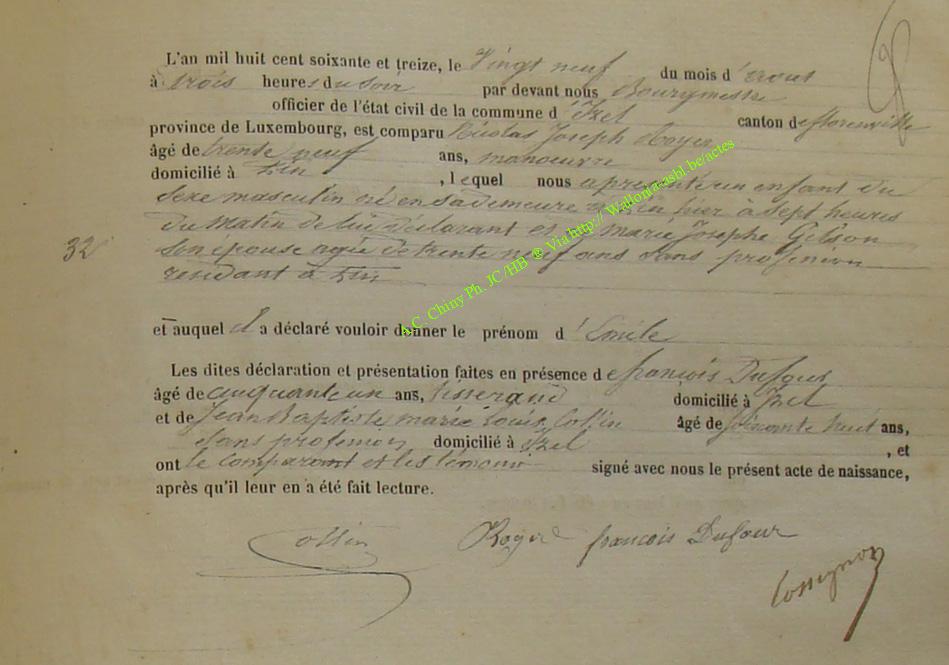 L'an mil huit cent soixante et treize, le Vingt neuf du mois d'aout
à trois heures du soir par devant nous Bourgmestre
officier de l'état civil de la commune d'Izel canton de florenville
province de Luxembourg, est comparu Nicolas Joseph Royer
âgé de trente neuf ans, manoeuvre
domicilié à , lequel nous a présenté un enfant du
sexe masculin né en sa demeure à hier à sept heures
du matin de lui déclarant et de marie Josephe Gilson
32
son épouse agée de trente neuf ans sans profession
résidant à
et auquel il a déclaré vouloir donner le prénom d'Emile
Les dites déclaration et présentation faites en présence de françois Dufour
âgé de cinquante un ans, tisserand domicilié à Izel
et de Jean Baptiste marie Louis Collin âgé de soixante huit ans,
sans profession domicilié à Izel , et
ont le comparant et les témoins signé avec nous le présent acte de naissance,
après qu'il leur en a été fait lecture.
Collin Royer françois Dufour
Rossignon
A.C. Chiny Ph. JC /HB ® Via http:// Wallonia-asbl.be/actes